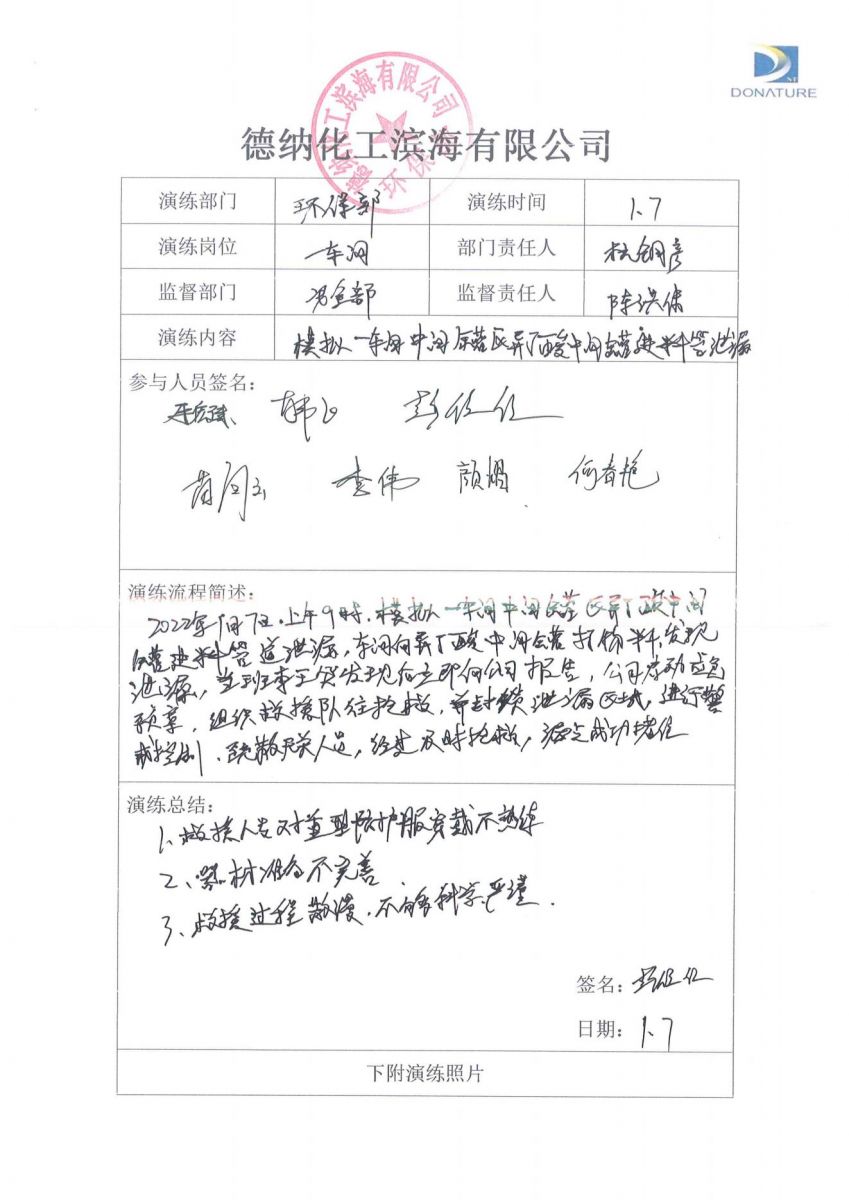 DONATURE
德纳化工滨海有限公司
德纳化工滨海有限公司
环保
演练部门 环保部 演练时间 1.7
演练岗位 一车间 部门责任人
监督部门 安全部 监督责任人
演练内容 模拟一车间中间罐区异丁酸中间罐进料管泄漏
参与人员签名：
韩飞 彭仕仕
李伟 颜娟 何春艳
演练流程简述：
2022年1月7日上午9时，模拟一车间中间罐区异丁酸中间
罐进料管道泄漏，车间向异丁酸中间罐打物料，发现
泄漏，当班班长发现后立即向公司报告，公司启动应急
预案，组织救援队伍抢救，并封锁泄漏区域，进行警
戒控制，疏散无关人员，经过及时抢救，漏点成功堵住
演练总结：
1、救援人员对重型防护服穿戴不熟练
2、器材准备不完善
3、救援过程散漫，不够科学严谨．
签名：
日期：1.7
下附演练照片